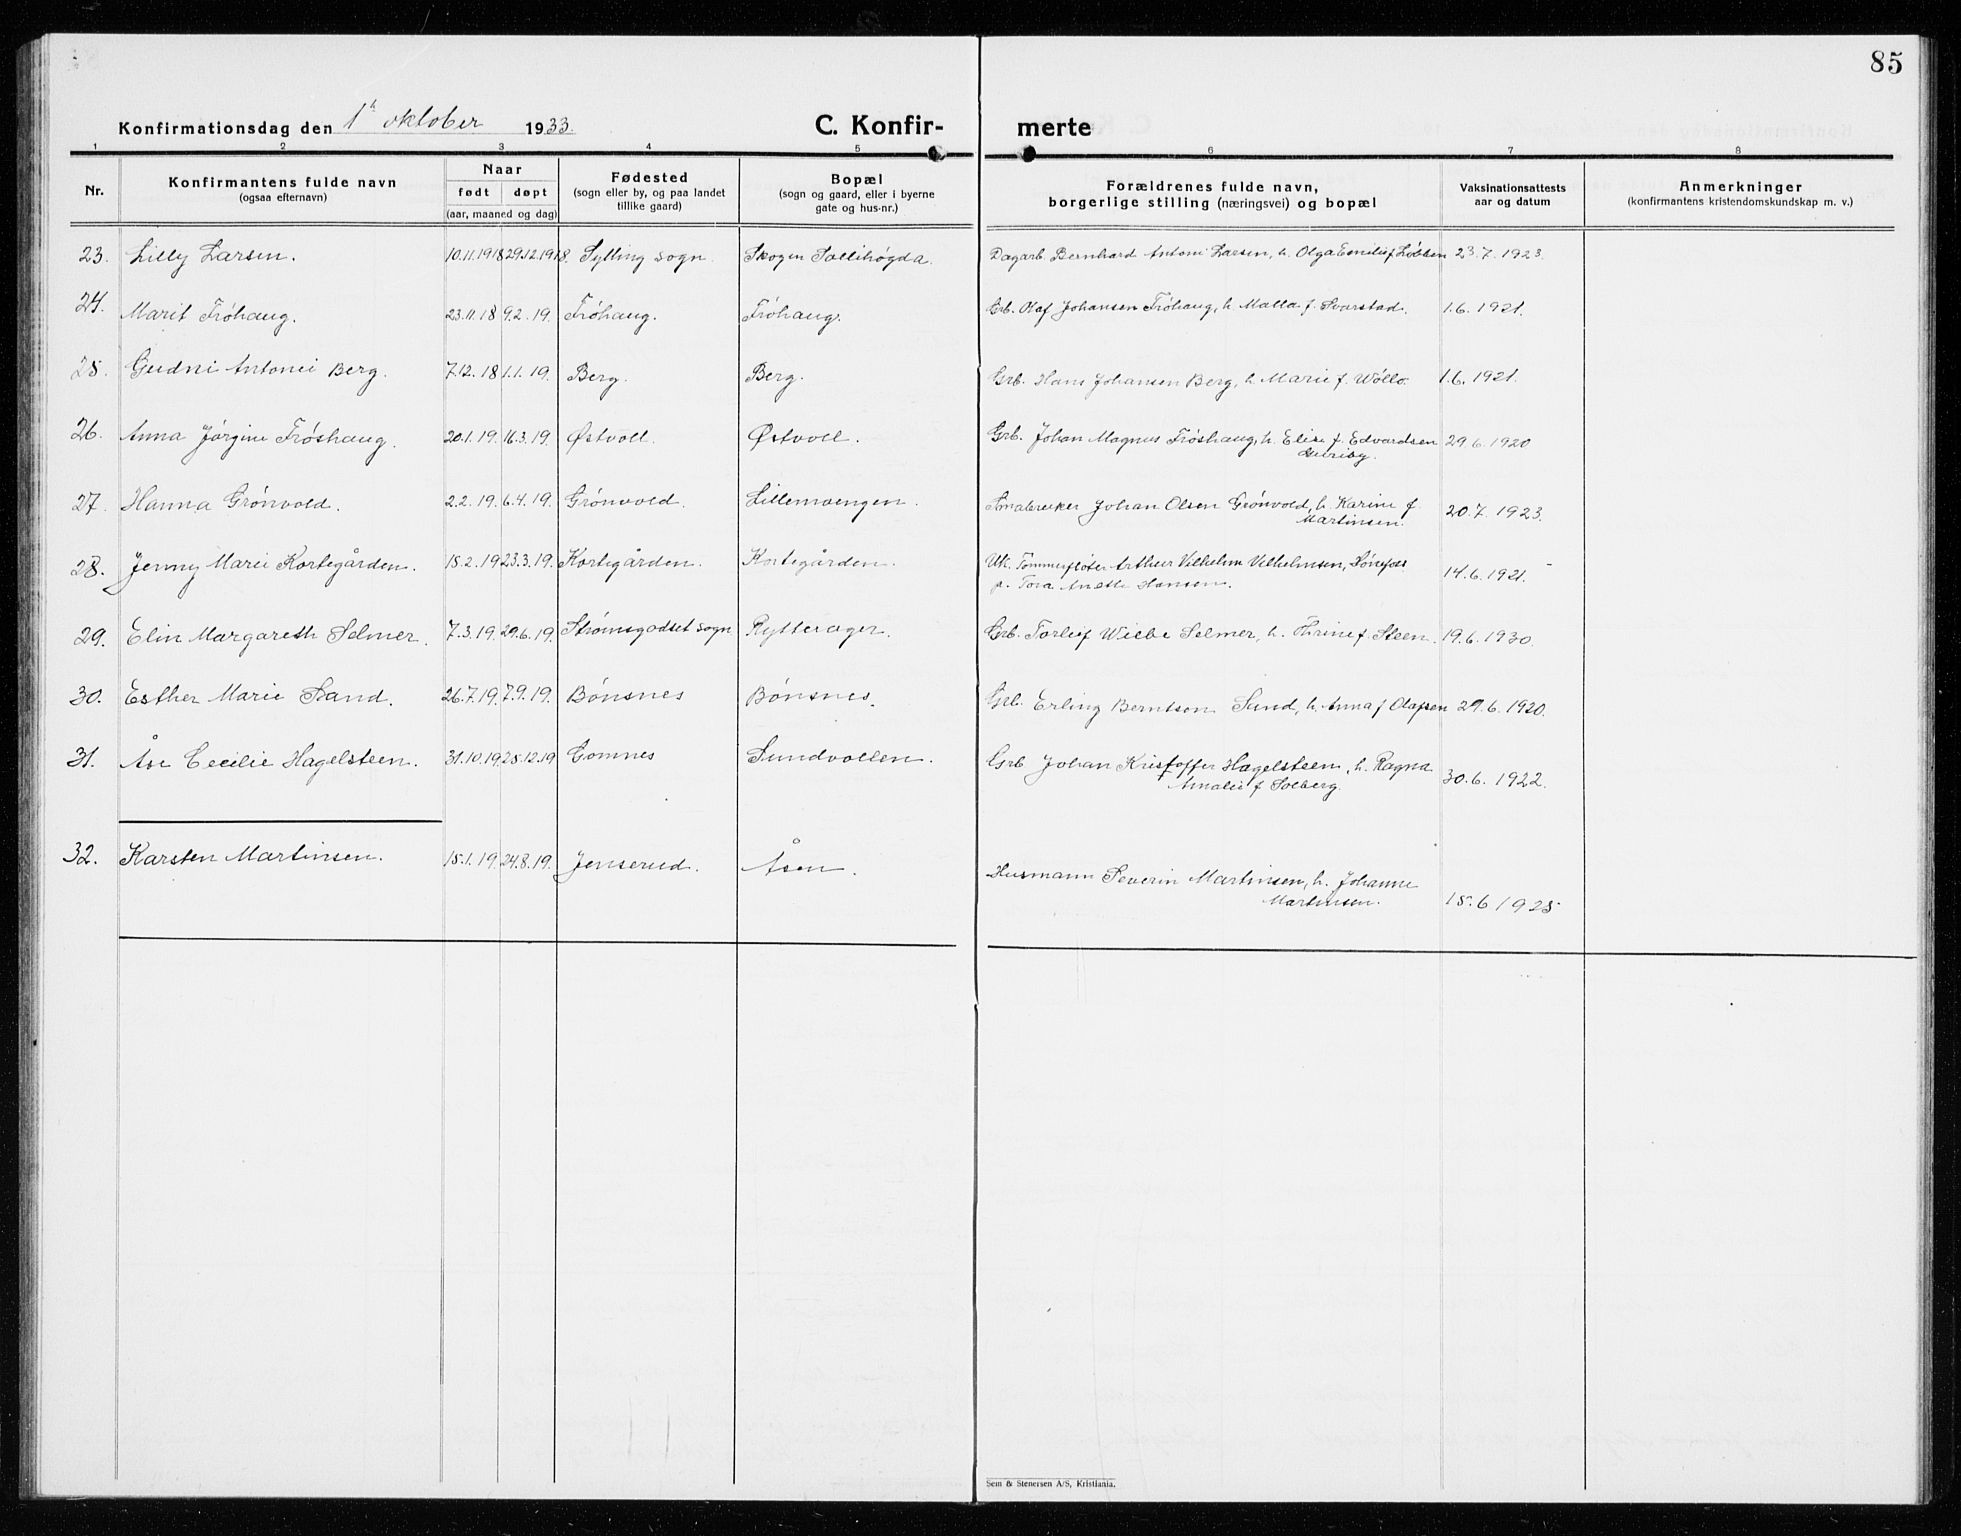 85
Konfirmationsdag den 1ste oktober 1933. C. Konfir- merte
1 2 3 4 5 6 7 8
Nr. Konfirmantens fulde navn (ogsaa efternavn) Naar født døpt (aar, maaned og dag) Fødested (sogn eller by, og paa landet tillike gaard) Bopæl (sogn og gaard, eller i byerne gate og hus-nr.) Forældrenes fulde navn, borgerlige stilling (næringsvei) og bopæl Vaksinationsattests aar og datum Anmerkninger (konfirmantens kristendomskundskap m. v.)
23. Lilly Larsen. 10.11.1918 29.12.1918. Sylling sogn. Skogen Sollihøgda. Dagarb. Bernhard Antoni Larsen, h. Olga Emilie f. Løbben 23.7.1923.
24. Marit Frøhaug. 23.11.18 9.2.19. Frøhaug. Frøhaug. Grb. Olaf Johansen Frøhaug, h. Malla f. Svarstad. 1.6.1921.
25. Gudni Antonei Berg. 7.12.18 1.1.19. Berg. Berg. Grb. Hans Johansen Berg, h. Marie f. Wøllo. 1.6.1921.
26. Anna Jørgine Frøshaug. 20.1.19. 16.3.19. Østvoll. Østvoll. Grb. Johan Magnus Frøshaug, h. Elise f. Edvardsen 29.6.1920
27. Hanna Grønvold. 2.2.19. 6.4.19. Grønvold. Lillemoengen. Småbruker Johan Olsen Grønvold, h. Karine f. Martinsen. 20.7.1923.
28. Jenny Marie Kortegården. 15.2.19. 23.3.19. Kortegården. Kortegården. Uk. Tømmerfløter Arthur Vilhelm Vilhelmsen, Hønefoss p. Tora Anette Hansen. 14.6.1921.
29. Elin Margareth Selmer. 7.3.19. 29.6.19. Strømsgodset sogn Rytterager. Grb. Torleif Wiebe Selmer, h. Thrine f. Steen. 19.6.1930.
30. Esther Marie Sand. 26.7.19. 7.9.19. Bønsnes Bønsnes. Grb. Erling Berntson Sund, h. Anna f Olafsen 29.6.1920.
31. Åse Cecilie Hagelsteen. 31.10.19. 25.12.19 Gomnes Sundvollen. Grb Johan Kristoffer Hagelsteen, h. Ragna Amalie f Solberg. 30.6.1922.
32. Karsten Martinsen. 15.1.19. 24.8.19. Jenserud. Åsen. Husmann Severin Martinsen, h. Johanne Martinsen. 15.6 1925
Sem & Stenersen A/S, Kristiania.